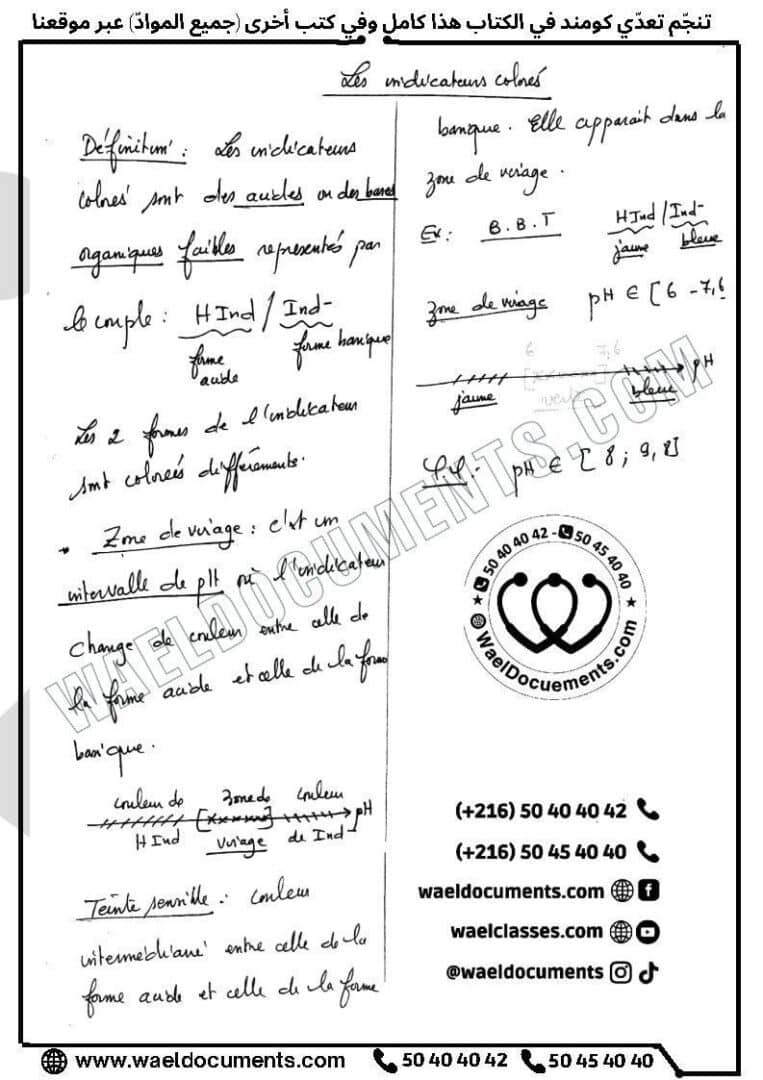 تنجّم تعدّي كومند في الكتاب هذا كامل وفي كتب أخرى (جميع الموادّ) عبر موقعنا
Les indicateurs colorés
Définition : Les indicateurs
colorés sont des acides ou des bases
organiques faibles représentés par
le couple : HInd / Ind-
forme acide
forme basique
Les 2 formes de l'indicateur
sont colorées différements.
* Zone de virage : c'est un
intervalle de pH où l'indicateur
change de couleur entre celle de
la forme acide et celle de la forme
basique.
couleur de zone de couleur
[xxxxxx] pH
HInd virage de Ind-
Teinte sensible : couleur
intermédiaire entre celle de la
forme acide et celle de la forme
basique. Elle apparait dans la
zone de virage.
Ex : B.B.T HInd / Ind-
jaune bleue
zone de virage pH ∈ [6 - 7,6
6 7,6
pH
jaune verte bleue
φ.φ :- pH ∈ [8 ; 9,8]
WAELDOCUMENTS.COM
50 40 40 42 - 50 45 40 40
WaelDocuements.com
(+216) 50 40 40 42
(+216) 50 45 40 40
waeldocuments.com
waelclasses.com
@waeldocuments
www.waeldocuments.com 50 40 40 42 50 45 40 40